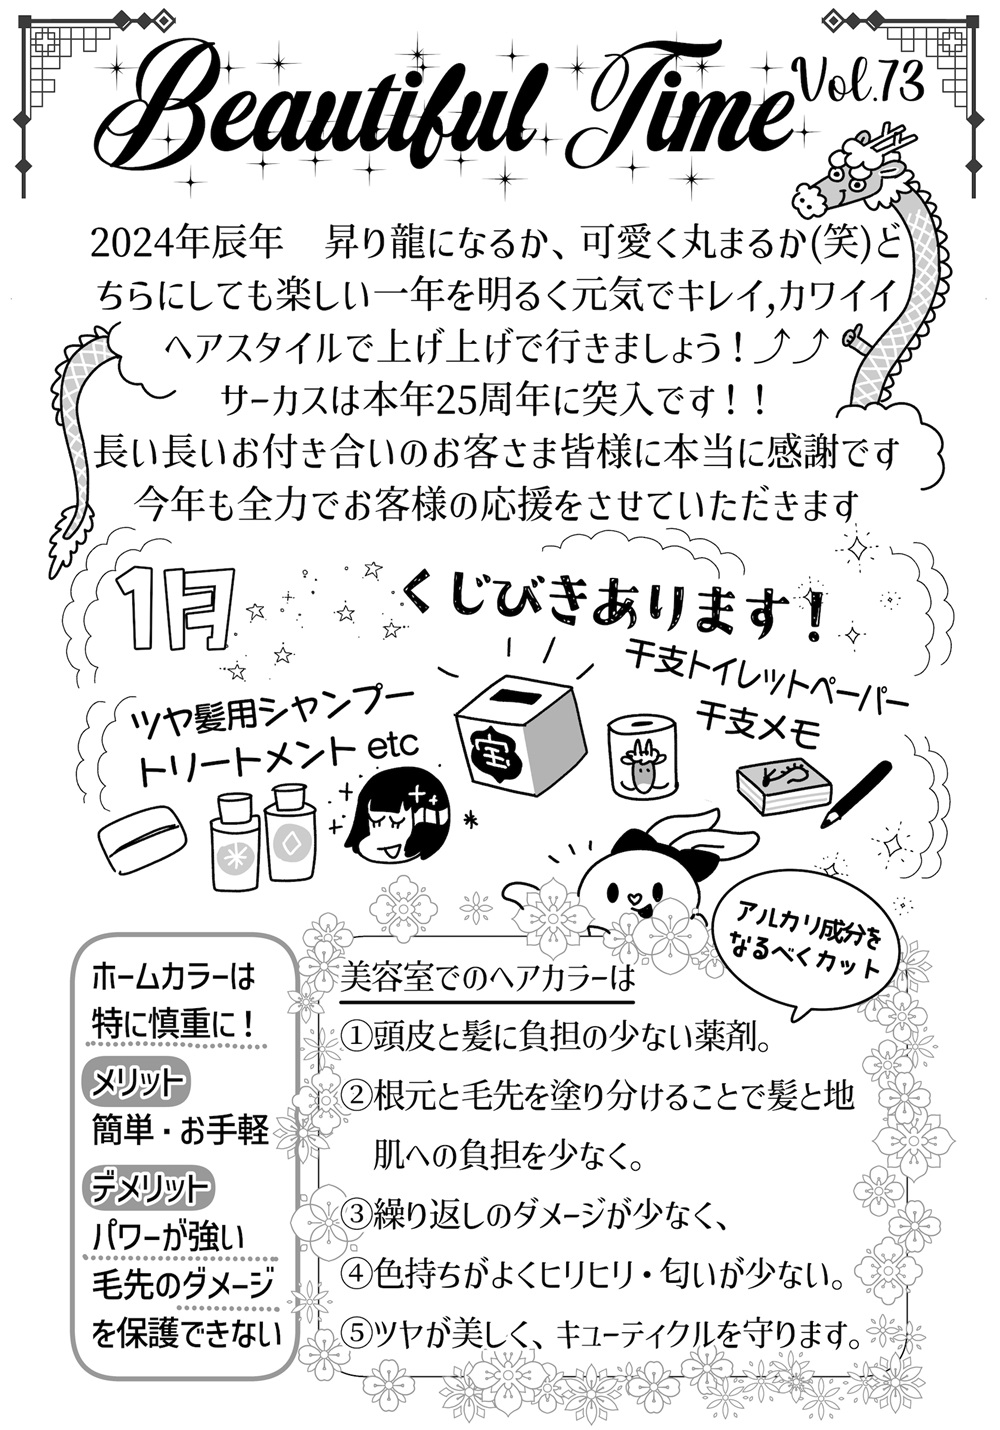 Beautiful Time Vol.73
2024年辰年　昇り龍になるか、可愛く丸まるか(笑)ど
ちらにしても楽しい一年を明るく元気でキレイ,カワイイ
ヘアスタイルで上げ上げで行きましょう！⤴⤴
サーカスは本年25周年に突入です！！
長い長いお付き合いのお客さま皆様に本当に感謝です
今年も全力でお客様の応援をさせていただきます
1月
くじびきあります！
干支トイレットペーパー
干支メモ
ツヤ髪用シャンプー
トリートメント etc
宝
アルカリ成分を
なるべくカット
ホームカラーは
特に慎重に！
メリット
簡単・お手軽
デメリット
パワーが強い
毛先のダメージ
を保護できない
美容室でのヘアカラーは
①頭皮と髪に負担の少ない薬剤。
②根元と毛先を塗り分けることで髪と地
肌への負担を少なく。
③繰り返しのダメージが少なく、
④色持ちがよくヒリヒリ・匂いが少ない。
⑤ツヤが美しく、キューティクルを守ります。